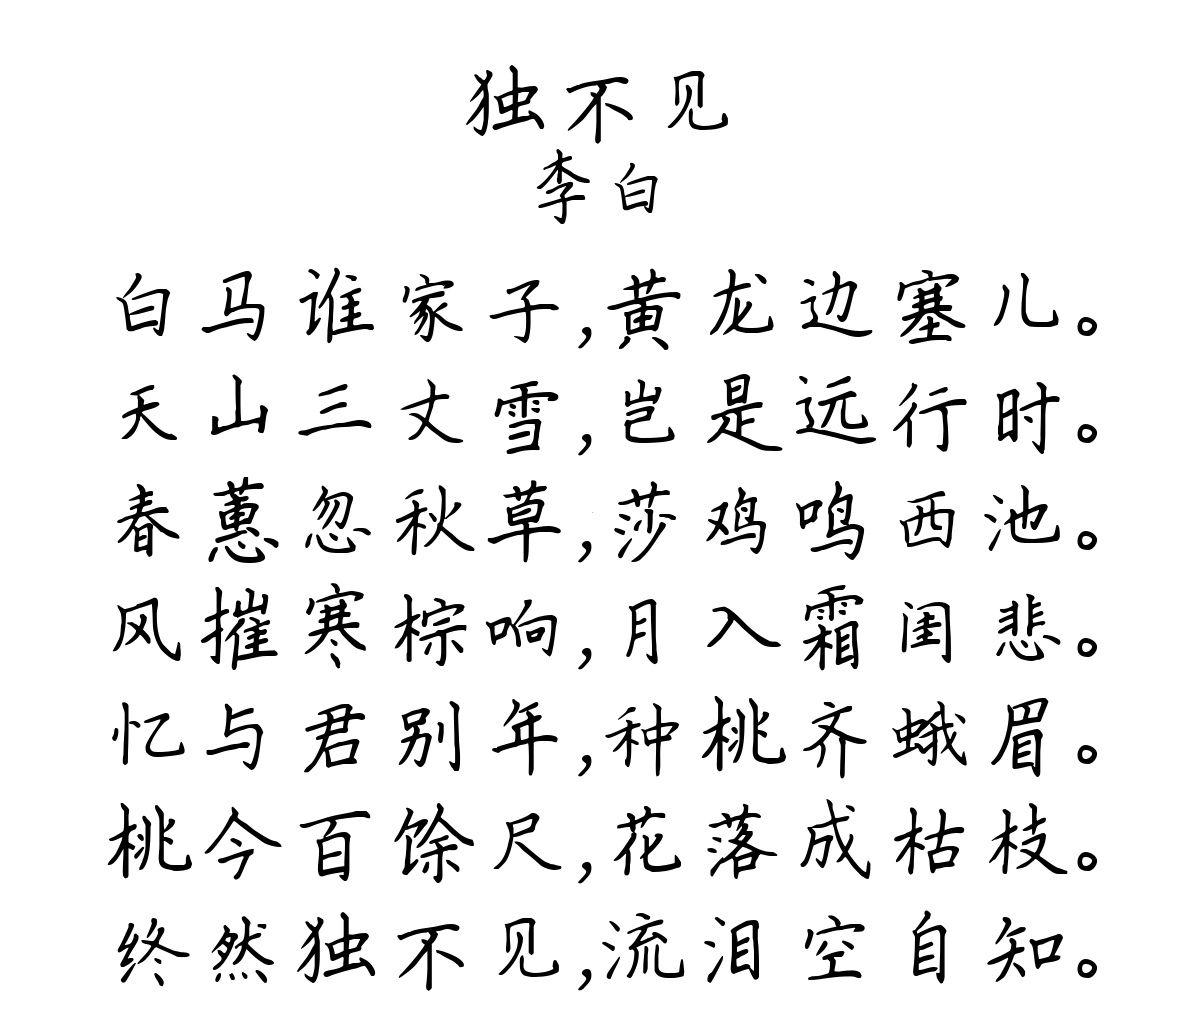 独不见
李白
白马谁家子,黄龙边塞儿。
天山三丈雪,岂是远行时。
春蕙忽秋草,莎鸡鸣西池。
风摧寒棕响,月入霜闺悲。
忆与君别年,种桃齐蛾眉。
桃今百馀尺,花落成枯枝。
终然独不见,流泪空自知。